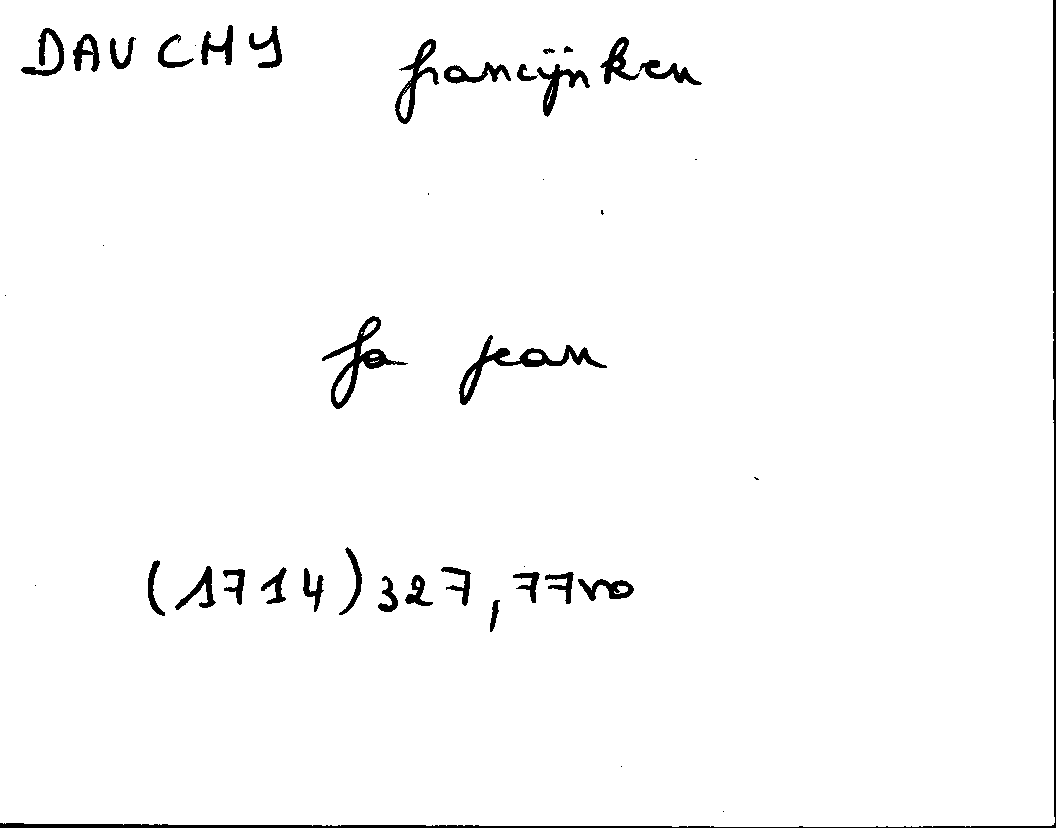 DAUCHY francijnken
fa jean
(1714) 327, 77vo